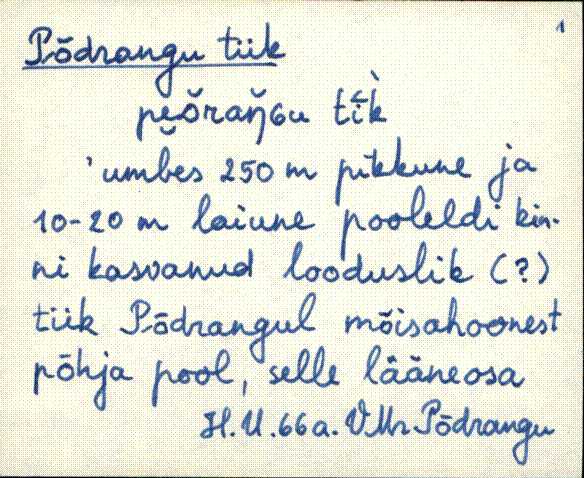 1
Põdrangu tiik
pĕŏrăŋ̆ɢu tì̆k
'umbes 250 m pikkune ja
10-20 m laiune pooleldi kin-
ni kasvanud looduslik (?)
tiik Põdrangul mõisahoonest
põhja pool, selle lääneosa
H.U. 66a. VMr Põdrangu